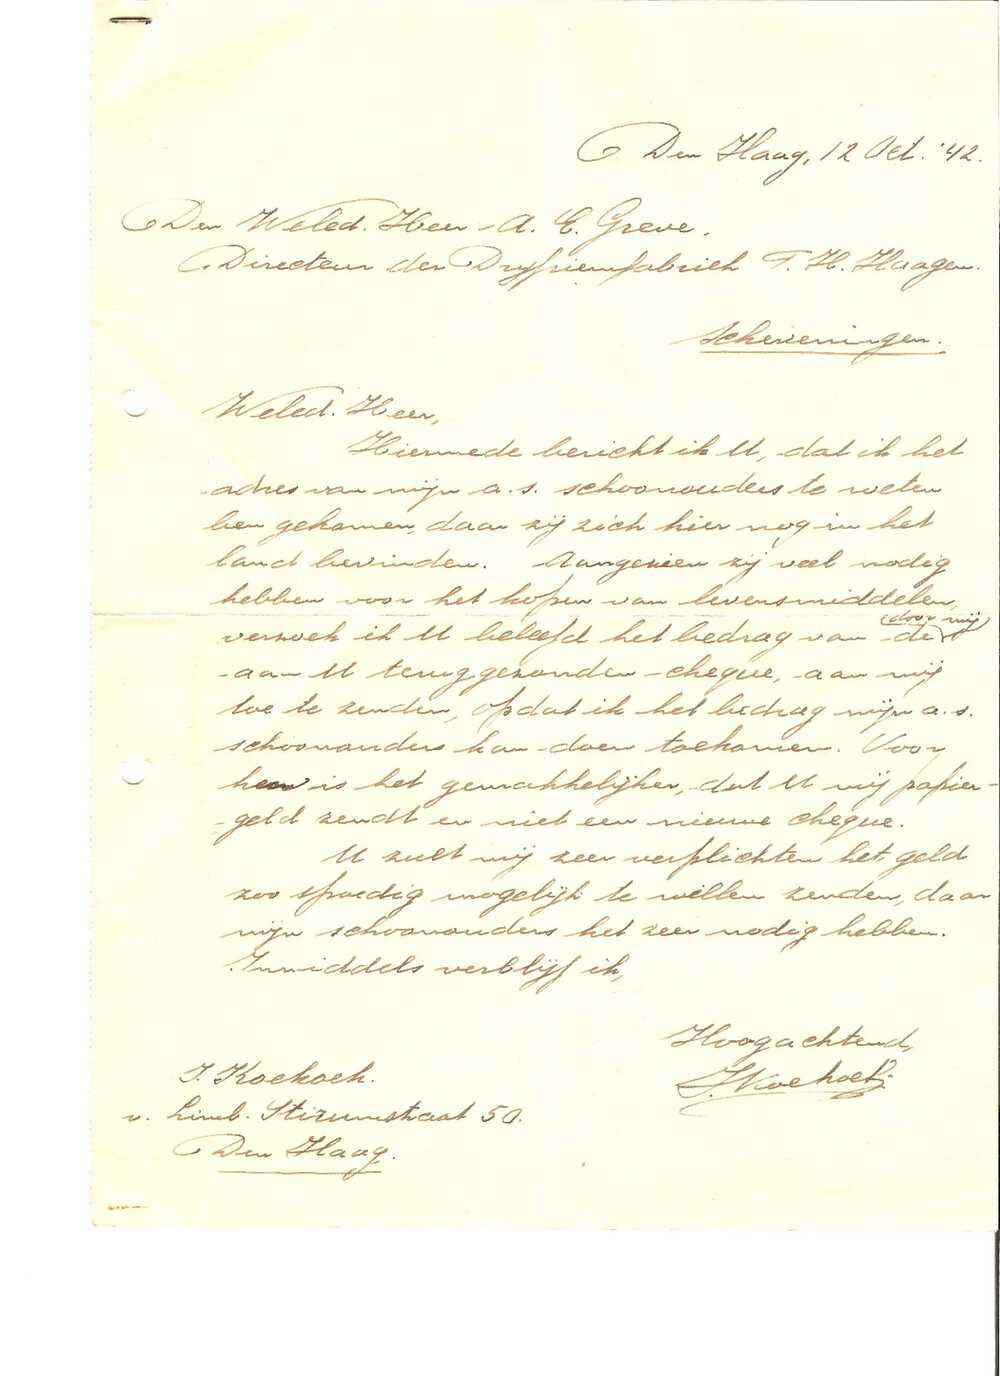 Den Haag, 12 Oct. '42.
Den Weled. Heer A. E. Greve.
Directeur der Drijfriemfabriek F. H. Haagen.
Scheveningen.
Weled. Heer,
Hiermede bericht ik U, dat ik het
adres van mijn a.s. schoonouders te weten
ben gekomen, daar zij zich hier nog in het
land bevinden. Aangezien zij veel nodig
hebben voor het kopen van levensmiddelen,
verzoek ik U beleefd het bedrag van de (door mij)
aan U teruggezonden cheque, aan mij
toe te zenden, opdat ik het bedrag mijn a.s.
schoonouders kan doen toekomen. Voor
hen is het gemakkelijker, dat U mij papier-
geld zendt en niet een nieuwe cheque.
U zult mij zeer verplichten het geld
zoo spoedig mogelijk te willen zenden, daar
mijn schoonouders het zeer nodig hebben.
Inmiddels verblijf ik,
Hoogachtend,
J. Koekoek.
J. Koekoek.
v. Limb. Stirumstraat 50.
Den Haag.